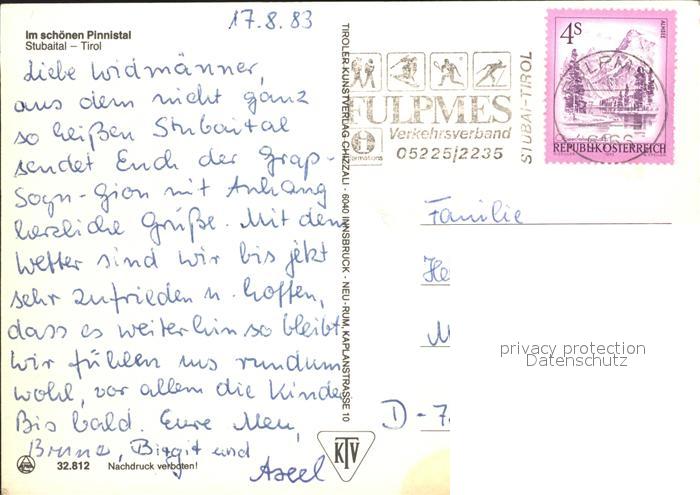 17.8.83
Im schönen Pinnistal
Stubaital – Tirol
Liebe Widmänner,
aus dem nicht ganz
so heißen Stubaital
sendet Euch der
Sogn-Gion mit Anhang
herzliche Grüße. Mit dem
Wetter sind wir bis jetzt
sehr zufrieden u. hoffen,
dass es weiterhin so bleibt.
Wir fühlen uns rundum
wohl, vor allem die Kinder
Bis bald. Eure
Birgit und
Axel
32.812 Nachdruck verboten!
TIROLER KUNSTVERLAG CHIZZALI · 6040 INNSBRUCK · NEU-RUM, KAPLANSTRASSE 10
KTV
FULPMES
Verkehrsverband
05225/2235
Informations
STUBAI-TIROL
4S
ALMSEE
REPUBLIK ÖSTERREICH
Familie
He
M
D - 7
privacy protection
Datenschutz